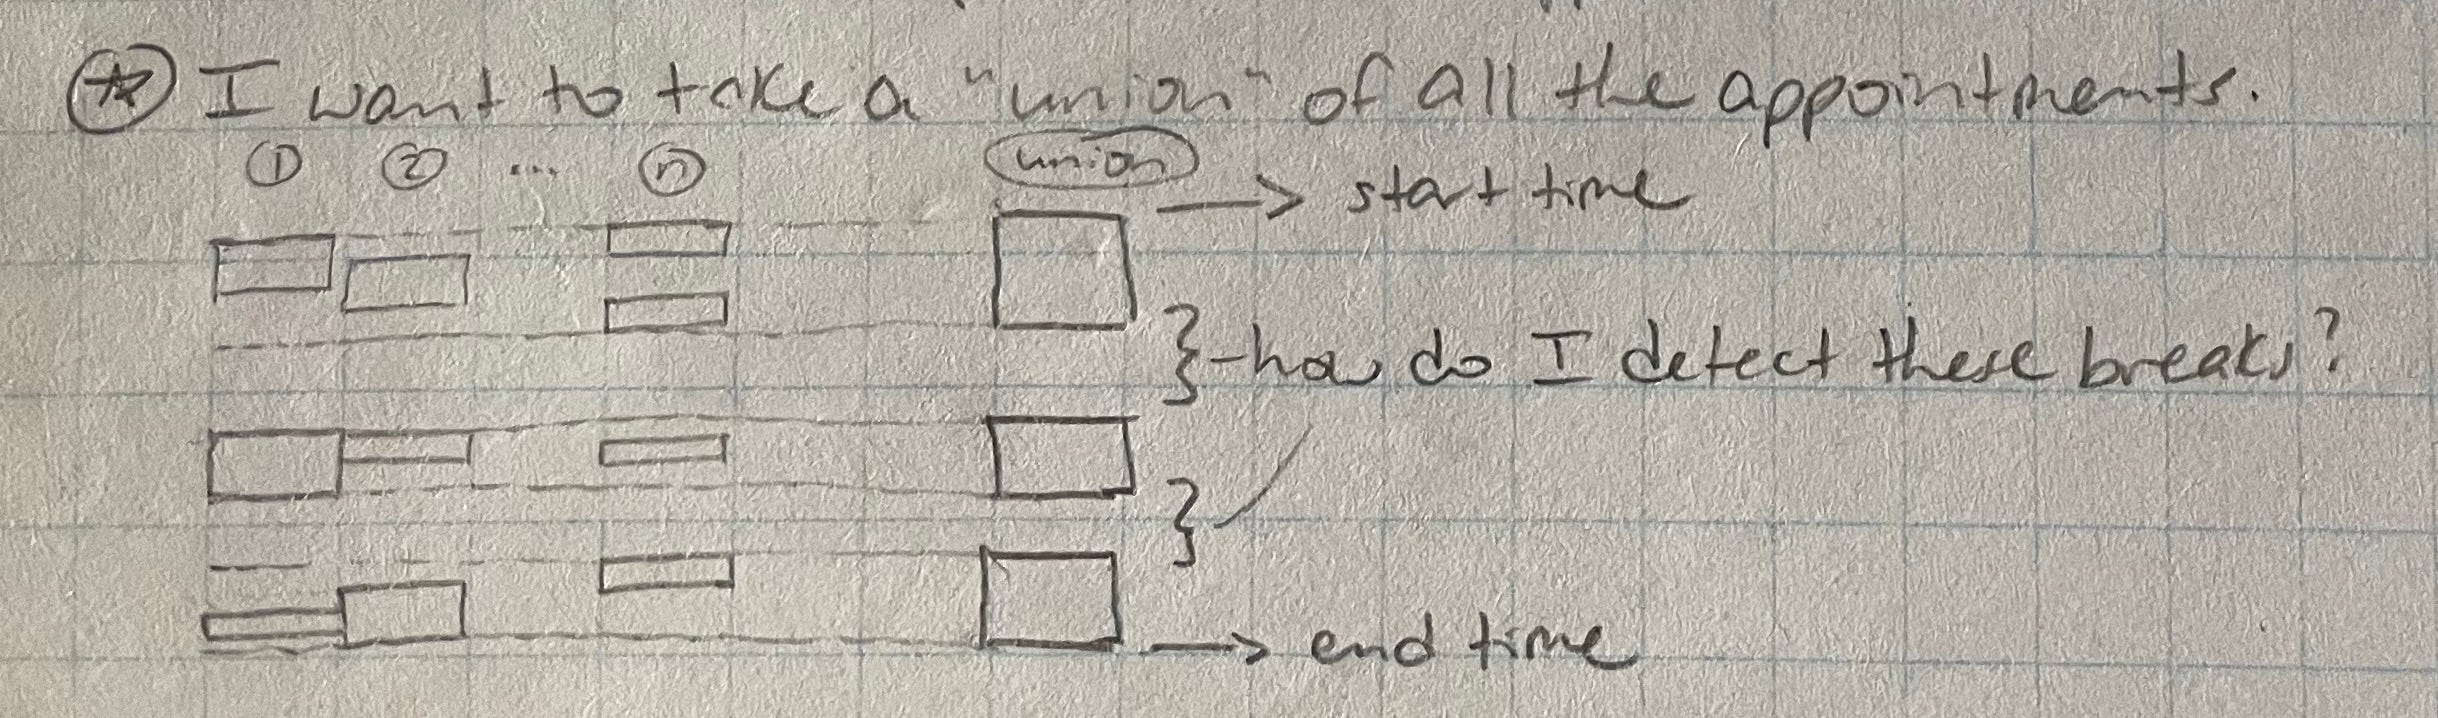 I want to take a "union" of all the appointments.
① ② ... ⓝ union → start time
} - how do I detect these breaks?
}
→ end time